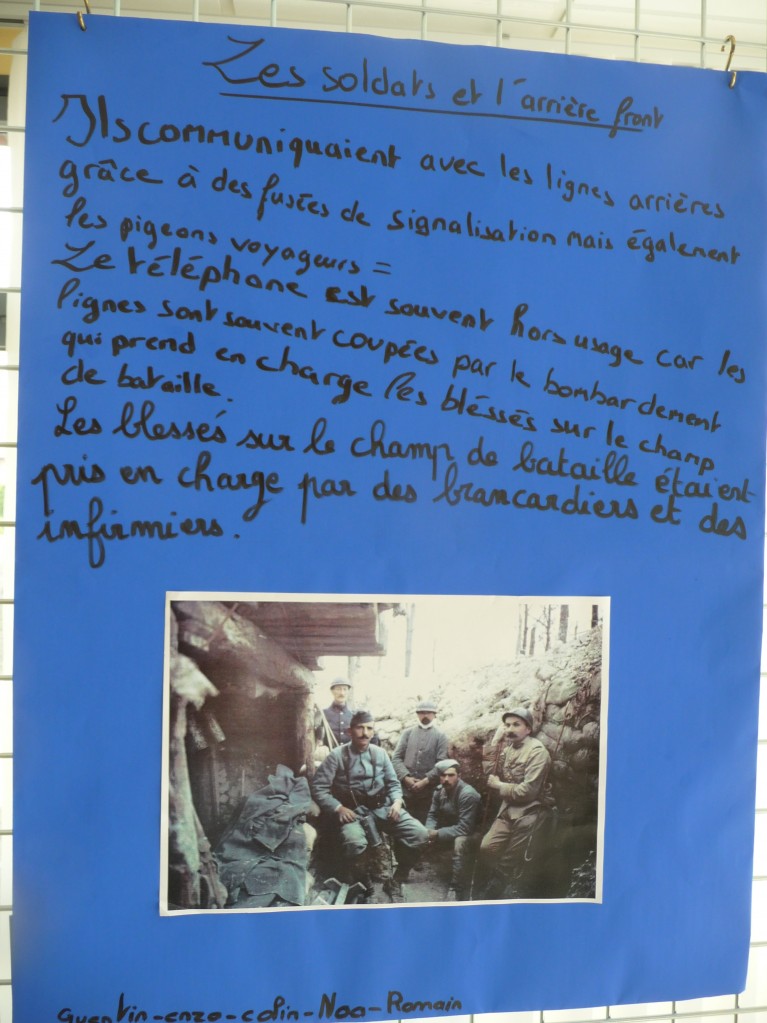 Les soldats et l'arrière front
Ils communiquaient avec les lignes arrières
grâce à des fusées de signalisation mais également
les pigeons voyageurs =
Le téléphone est souvent hors usage car les
lignes sont souvent coupées par le bombardement
qui prend en charge les bléssés sur le champ
de bataille.
Les blessés sur le champ de bataille étaient
pris en charge par des brancardiers et des
infirmiers.
Quentin-enzo-colin-Noa-Romain